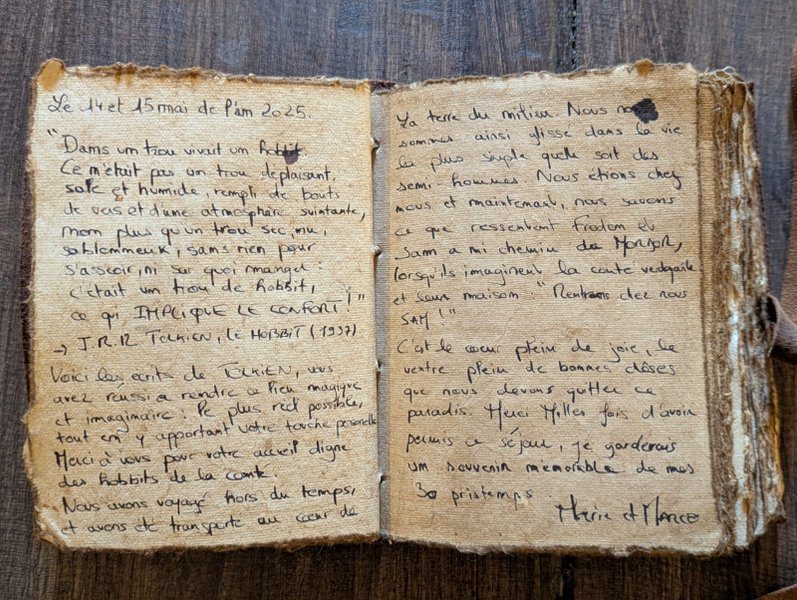 Le 14 et 15 mai de l'an 2025.
"Dans un trou vivait un hobbit
Ce n'était pas un trou deplaisant,
sale et humide, rempli de bouts
de vers et d'une atmosphère suintante,
non plus qu'un trou sec, nu,
sablonneux, sans rien pour
s'asseoir, ni sur quoi manger :
c'était un trou de hobbit,
ce qui IMPLIQUE LE CONFORT !"
→ J.R.R TOLKIEN, LE HOBBIT (1937)
Voici les écrits de TOLKIEN, vous
avez réussi a rendre ce lieu magique
et imaginaire : le plus réel possible,
tout en y apportant votre touche personnelle
Merci à vous pour votre accueil digne
des hobbits de la comté.
Nous avons voyagé hors du temps,
et avons été transporté au cœur de
La terre du milieu. Nous nous
sommes ainsi glissé dans la vie
la plus simple quelle soit des
semi-hommes. Nous étions chez
nous et maintenant, nous savons
ce que ressentent Frodon et
Sam a mi chemin du MORDOR,
lorsqu'ils imaginent la comté verdoyante
et leur maison : "Rentrons chez nous
SAM !"
C'est le cœur plein de joie, le
ventre plein de bonnes choses
que nous devons quitter ce
paradis. Merci Milles fois d'avoir
permis ce séjour, je garderais
un souvenir mémorable de mes
30 printemps.
Marie et